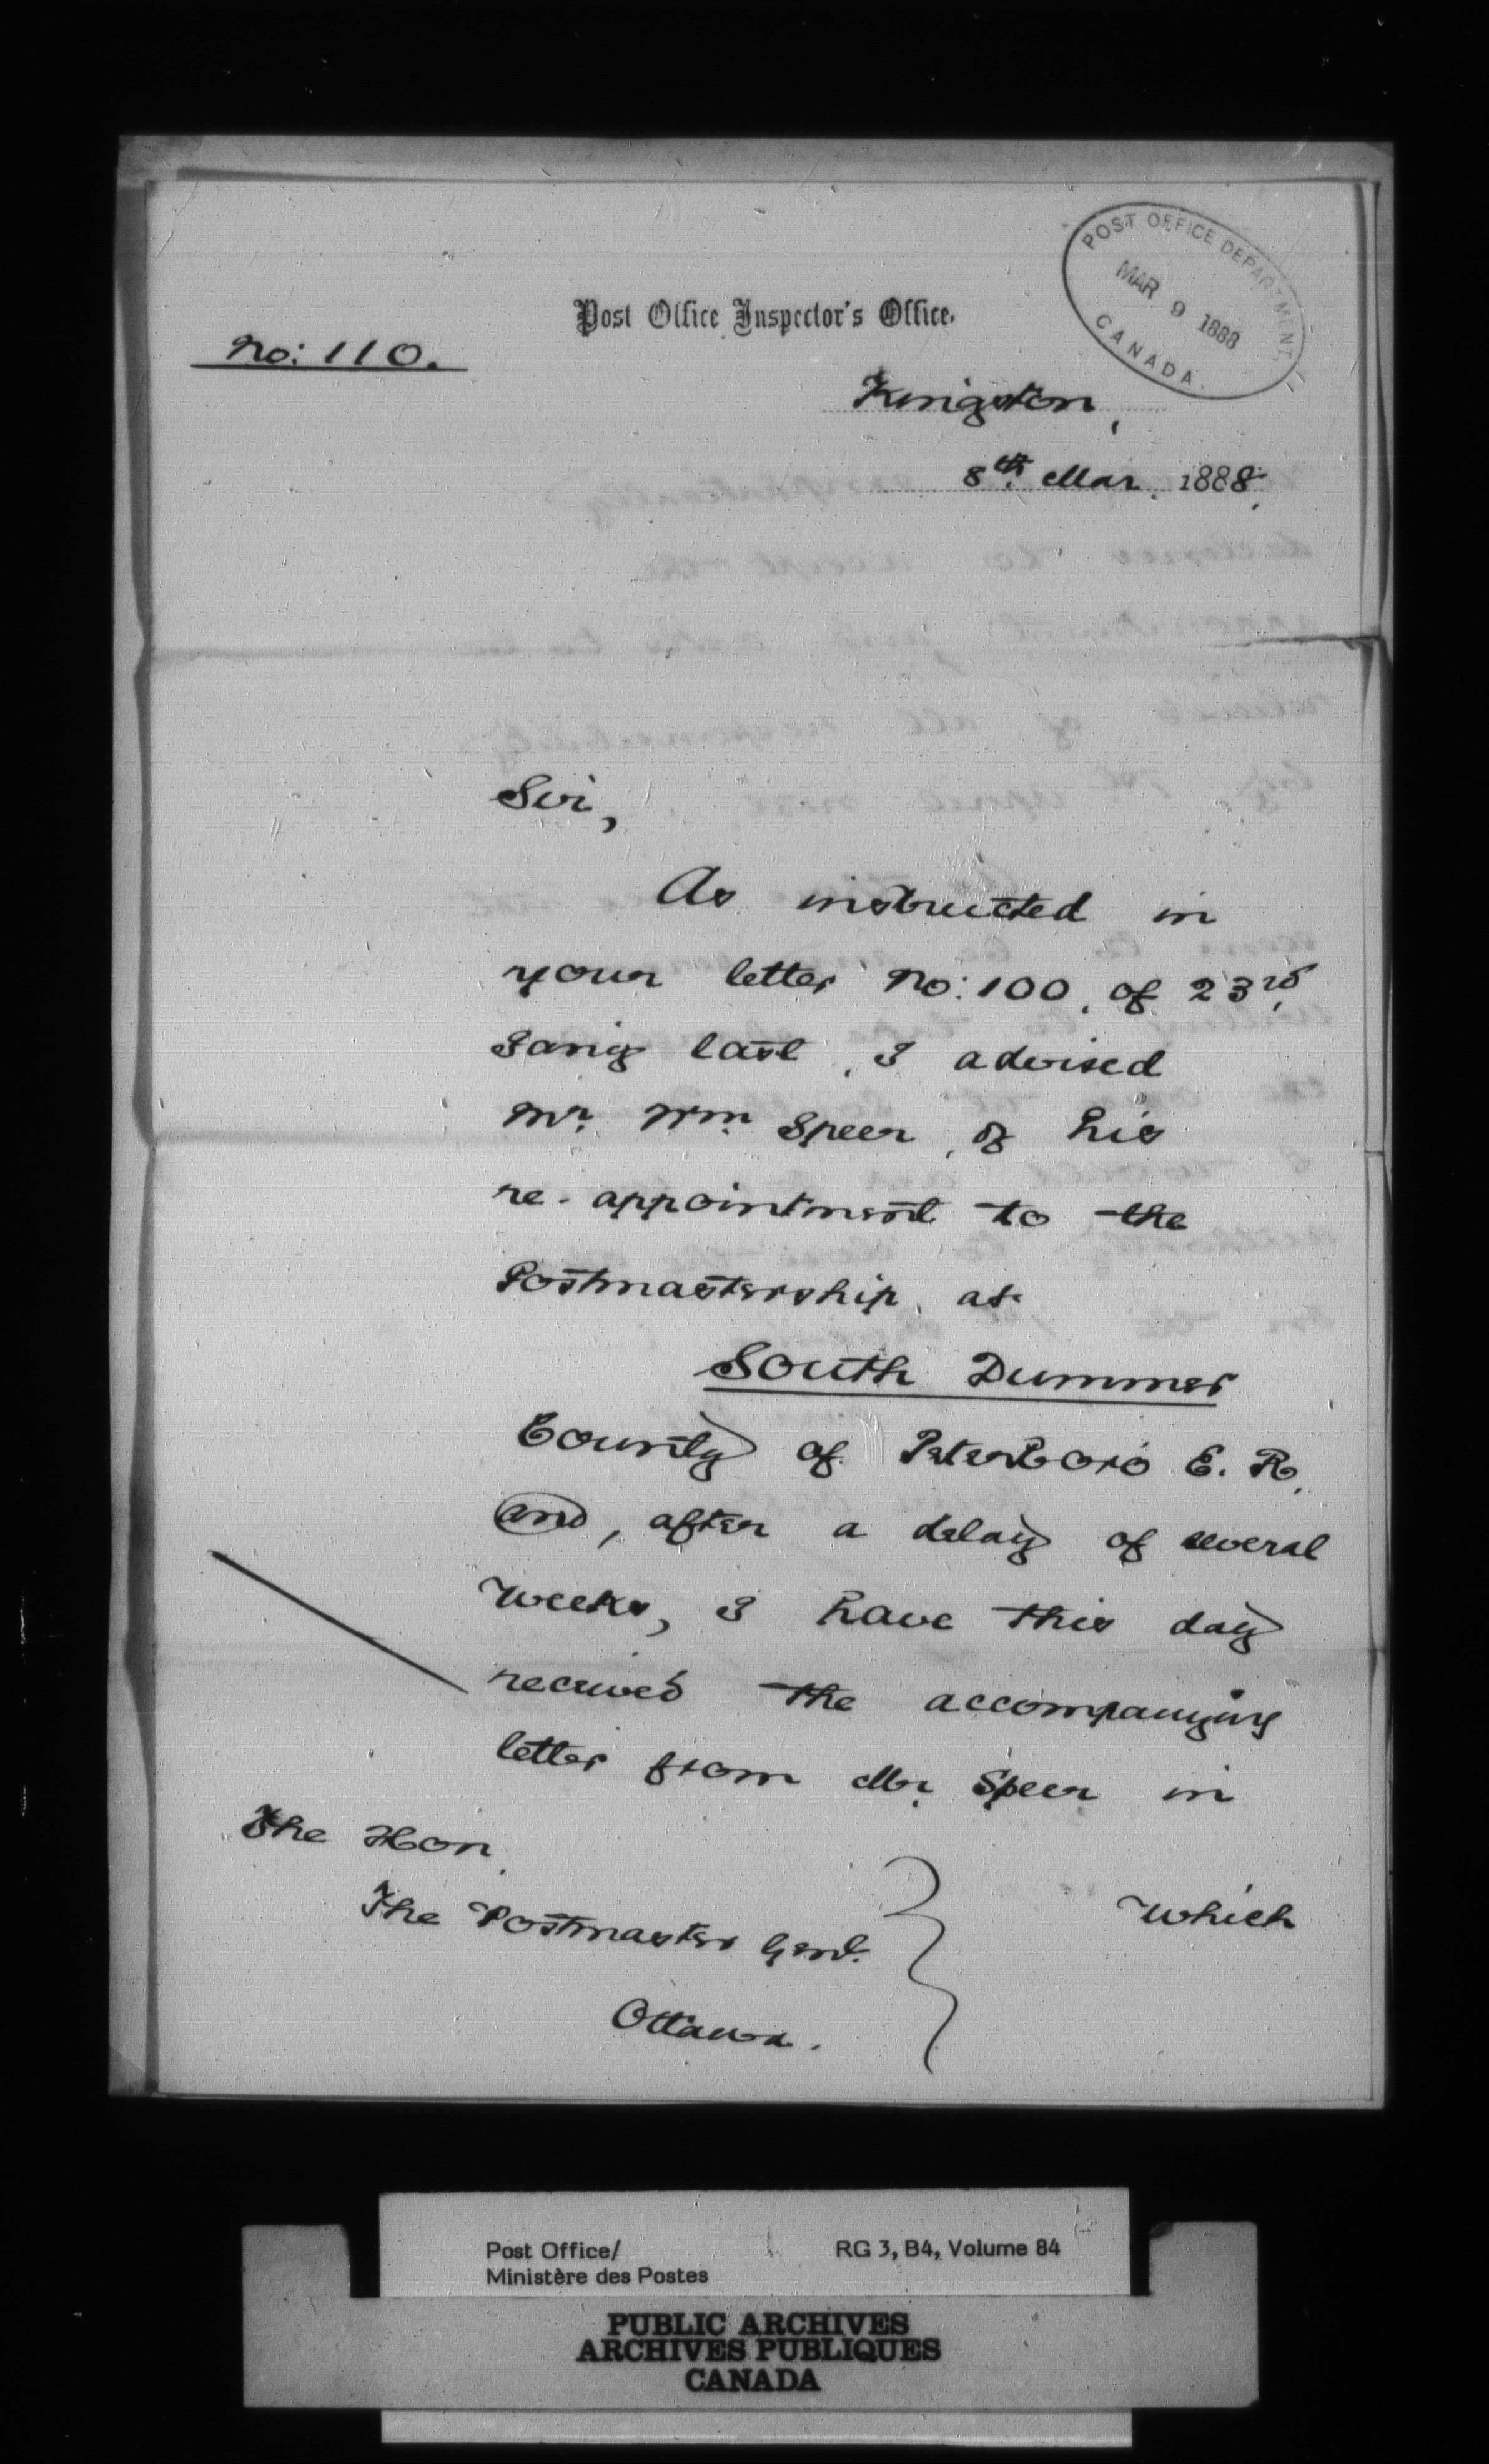 POST OFFICE DEPARTMENT.
MAR 9 1888
CANADA.
Post Office Inspector's Office.
No: 110.
Kingston,
8th. Mar. 1888.
Sir,
As instructed in
your letter No: 100, of 23rd
Jany last, I advised
Mr. Wm Speer, of his
re-appointment to the
Postmastership, at
South Dummer
County of Peterboro' E. R,
and, after a delay of several
weeks, I have this day
received the accompanying
letter from Mr. Speer in
which
The Hon.
The Postmaster Genl.
Ottawa.
Post Office/
Ministère des Postes
RG 3, B4, Volume 84
PUBLIC ARCHIVES
ARCHIVES PUBLIQUES
CANADA